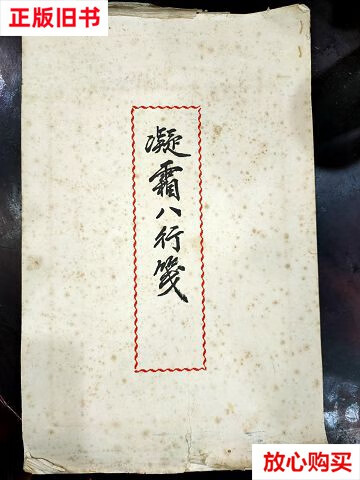 正版旧书
凝霜八行笺
放心购买